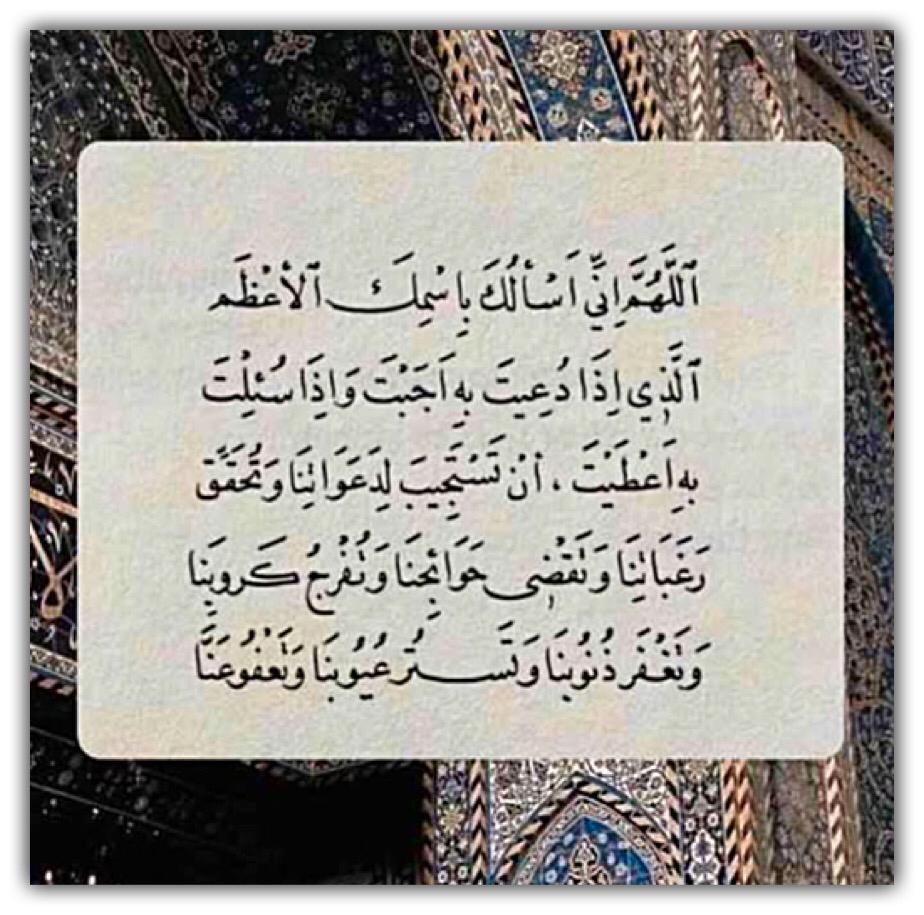 ٱللَّهُمَّ اِنِّي اَسْأَلُكَ بِاسْمِكَ ٱلأَعْظَم
ٱلَّذِي اِذَا دُعِيتَ بِهِ اَجَبْتَ وَاِذَا سُئِلْتَ
بِهِ اَعْطَيْتَ ، أنْ تَسْتَجِيبَ لِدَعَوَاتِنَا وَتُحَقِّقَ
رَغَبَاتِنَا وَتَقْضِي حَوَائِجَنَا وَتُفْرِجُ كروبِنا
وَتَغْفَر ذُنُوبِنَا وَتَسْتُر عُيُوبِنَا وَتَعْفُو عَنَّا